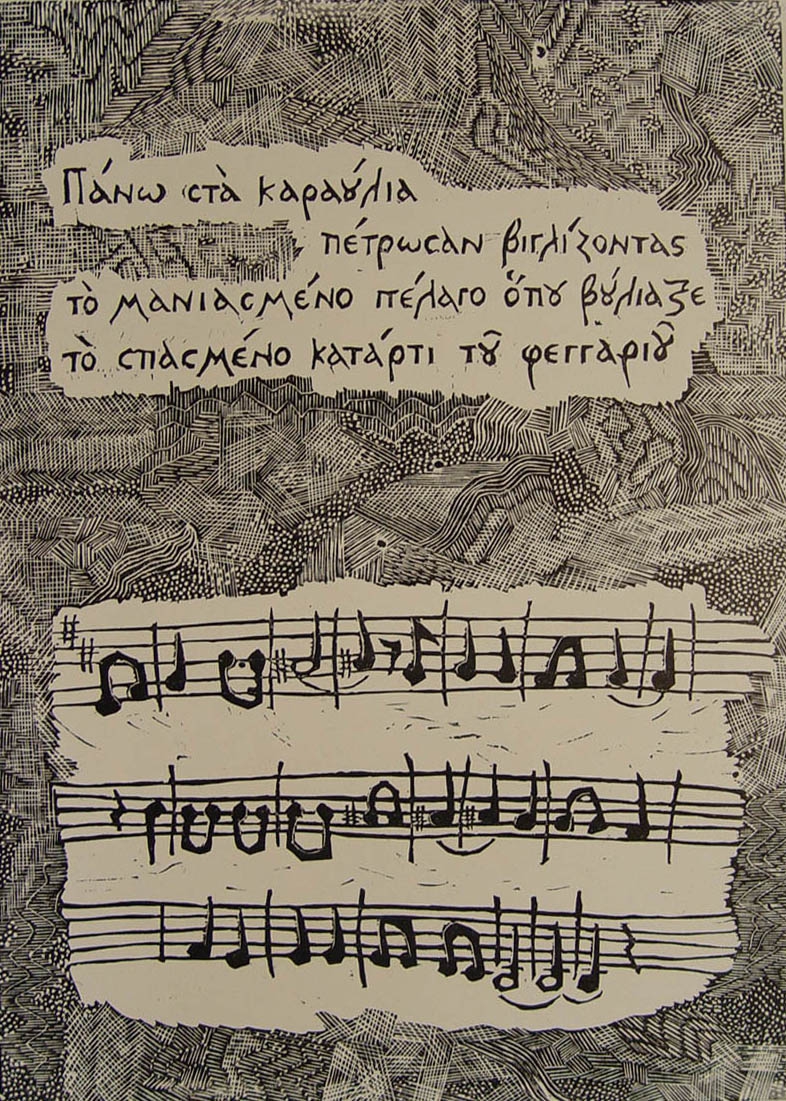 Πάνω στὰ καραȣ́λια
πέτρωσαν βιγλίζοντας
τὸ μανιασμένο πέλαγο ὅπȣ βȣ́λιαξε
τὸ σπασμένο κατάρτι τȣ͂ φεγγαριȣ͂